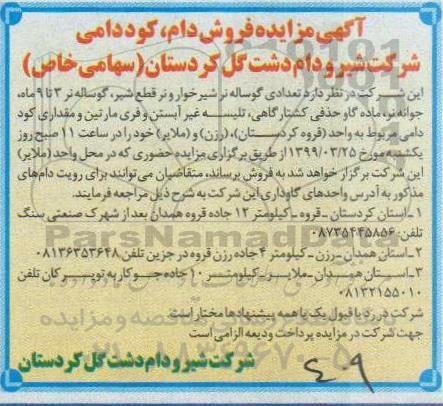 آگهی مزایده فروش دام، کود دامی
شرکت شیر و دام دشت گل کردستان (سهامی خاص)
این شرکت در نظر دارد تعدادی گوساله نر شیرخوار و نر قطع شیر، گوساله نر ۳ تا ۹ ماه،
جوانه نر، ماده گاو حذفی کشتارگاهی، تلیسه غیر آبستن و فری مارتین و مقداری کود
دامی مربوط به واحد (قروه کردستان)، (رزن) و (ملایر) خود را در ساعت ۱۱ صبح روز
یکشنبه مورخ ۱۳۹۹/۰۳/۲۵ از طریق برگزاری مزایده حضوری که در محل واحد (ملایر)
این شرکت برگزار خواهد شد به فروش برساند، متقاضیان می‌توانند برای رویت دام‌های
مذکور به آدرس واحدهای گاوداری این شرکت به شرح ذیل مراجعه فرمایند.
۱- استان کردستان - قروه - کیلومتر ۱۲ جاده قروه همدان بعد از شهرک صنعتی سنگ
تلفن: ۰۸۷۳۵۴۴۵۸۵۶
۲- استان همدان - رزن - کیلومتر ۴ جاده رزن قروه در جزین تلفن ۰۸۱۳۶۳۵۳۶۴۸
۳- استان همدان - ملایر - کیلومتر ۱۰ جاده جوکار به تویسرکان تلفن
۰۸۱۳۲۱۵۵۰۱۰
شرکت در رد یا قبول یک یا همه پیشنهادها مختار است
جهت شرکت در مزایده پرداخت ودیعه الزامی است
شرکت شیر و دام دشت گل کردستان
۴۹
ParsNamadData